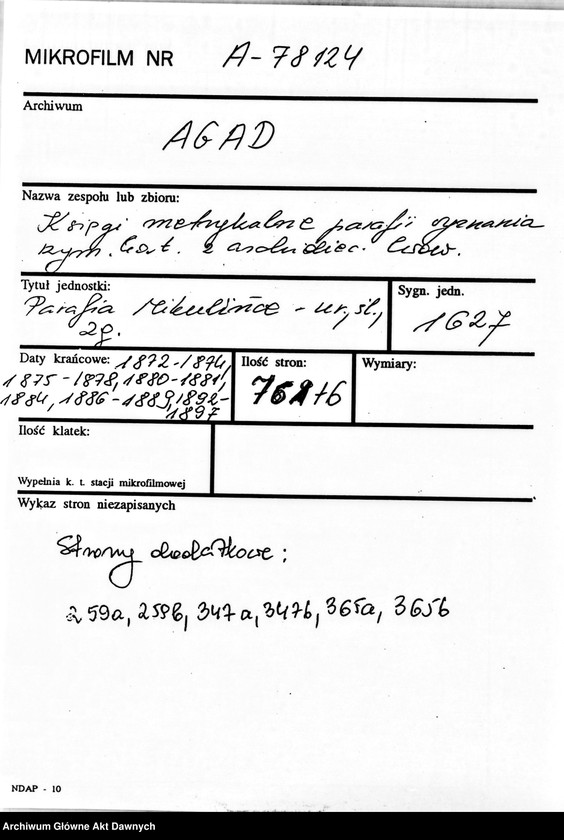 MIKROFILM NR A-78124
Archiwum
AGAD
Nazwa zespołu lub zbioru:
Księgi metrykalne parafii wyznania
rzym. kat. z archidiec. lwow.
Tytuł jednostki:
Parafia Mikulińce - ur, śl.,
zg.
Sygn. jedn.
1627
Daty krańcowe: 1872-1874,
1875-1878, 1880-1881,
1884, 1886-1889, 1892-
1897
Ilość stron:
762+6
Wymiary:
Ilość klatek:
Wypełnia k. t. stacji mikrofilmowej
Wykaz stron niezapisanych
Strony dodatkowe:
259a, 259b, 347a, 347b, 365a, 365b
NDAP - 10
Archiwum Główne Akt Dawnych